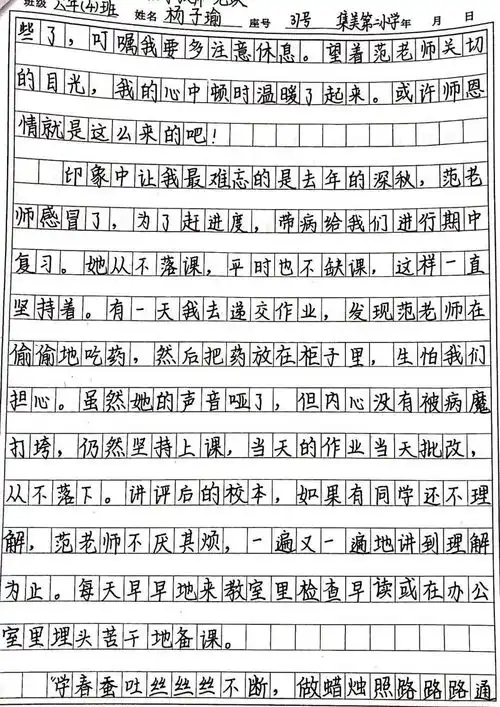 班级 六年(4)班 姓名 杨子瑜 座号 31号 集美第二小学 年 月 日
些了，叮嘱我要多注意休息。望着范老师关切
的目光，我的心中顿时温暖了起来。或许师恩
情就是这么来的吧！
印象中让我最难忘的是去年的深秋，范老
师感冒了，为了赶进度，带病给我们进行期中
复习。她从不落课，平时也不缺课，这样一直
坚持着。有一天我去递交作业，发现范老师在
偷偷地吃药，然后把药放在柜子里，生怕我们
担心。虽然她的声音哑了，但内心没有被病魔
打垮，仍然坚持上课，当天的作业当天批改，
从不落下。讲评后的校本，如果有同学还不理
解，范老师不厌其烦，一遍又一遍地讲到理解
为止。每天早早地来教室里检查早读或在办公
室里埋头苦干地备课。
“学春蚕吐丝丝丝不断，做蜡烛照路路路通